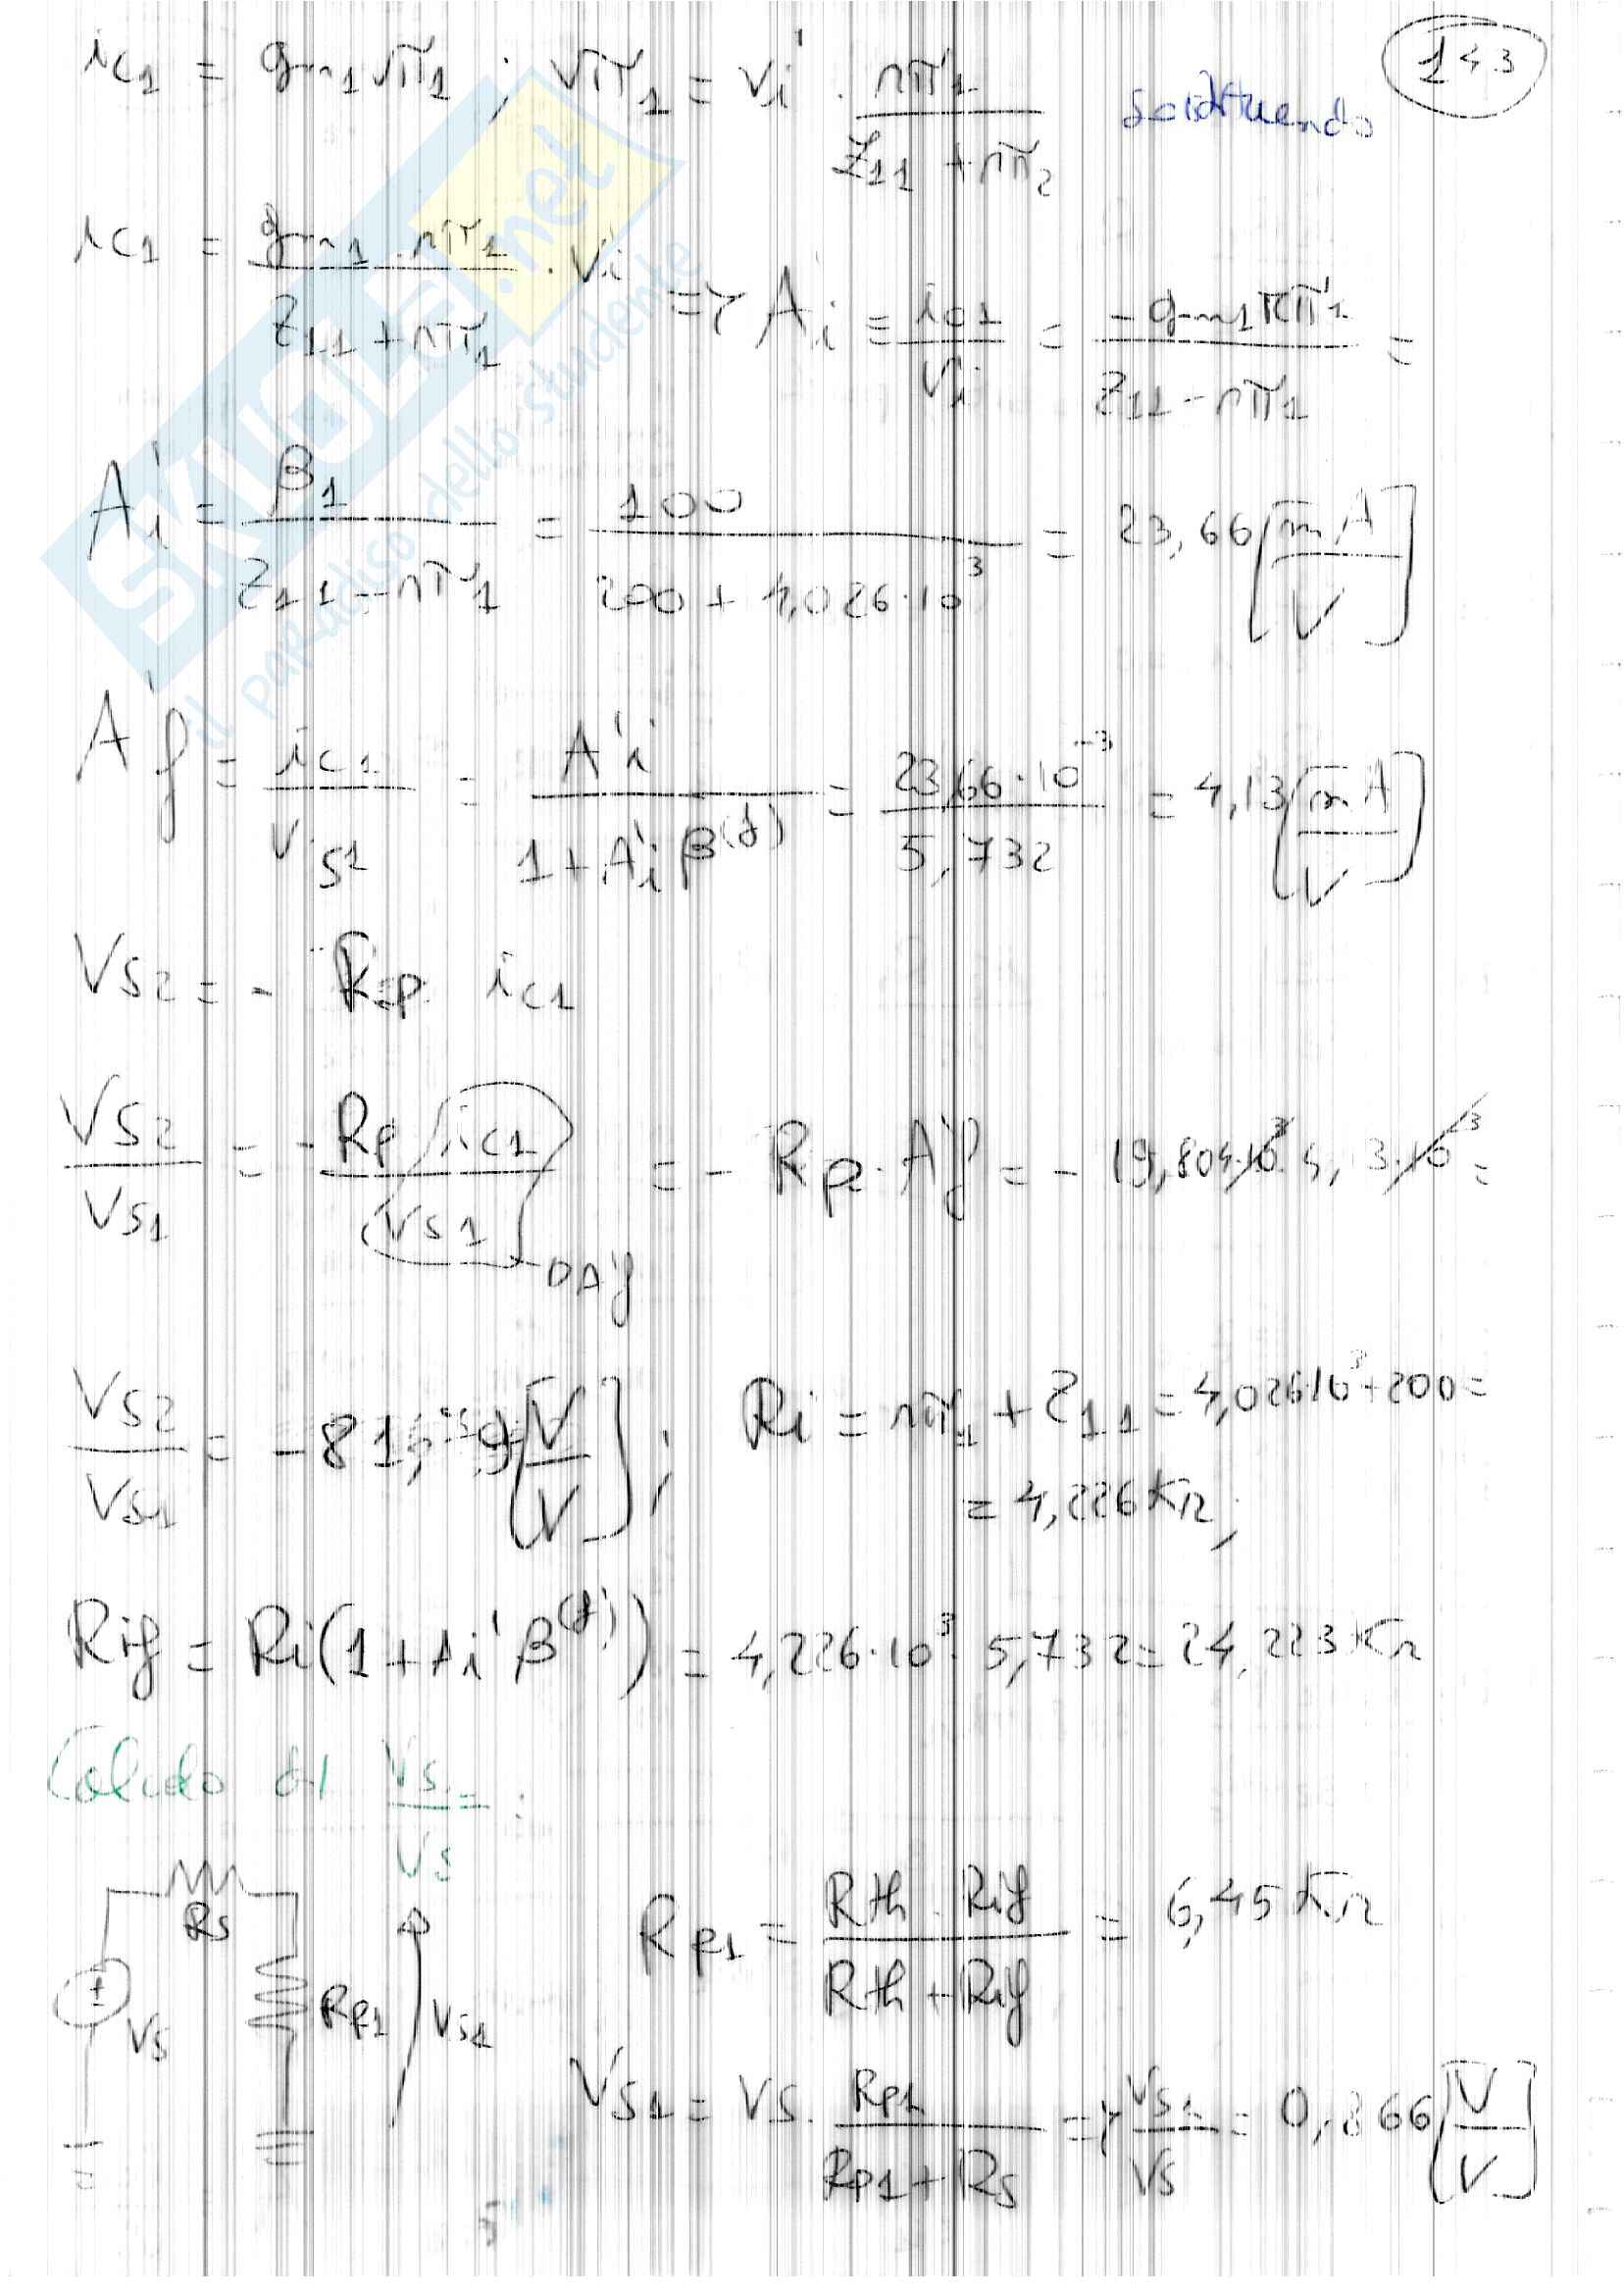 143
ic1 = gm1 vπ1 ; vπ1 = vi' · rπ1 / (Z11 + rπ2) sostituendo
ic1 = gm1 · rπ1 / (Z11 + rπ1) · Vi => A'i = ic1 / Vi = -gm1 rπ1 / (Z11 - rπ1) =
A'i = β1 / (Z11 - rπ1) = 100 / (200 + 4,026·10³) = 23,66 [mA/V]
A'f = ic1 / Vs1 = A'i / (1 + A'i β(f)) = 23,66·10⁻³ / 5,732 = 4,13 [mA/V]
Vs2 = - Rp ic1
Vs2 / Vs1 = - Rp ic1 / Vs1 = - Rp · A'f = - 19,804·10³ · 4,13·10⁻³ =
A'f
Vs2 / Vs1 = -81, [V/V] ; Ri = rπ1 + Z11 = 4,026·10³ + 200 =
= 4,226 KΩ ;
Rif = Ri (1 + Ai' β(f)) = 4,226·10³ · 5,732 = 24,223 KΩ
Calcolo di Vs1 / Vs :
Rs
Rp1 = Rth · Rif / (Rth + Rif) = 6,45 KΩ
± Vs Rp1 Vs1
Vs1 = Vs · Rp1 / (Rp1 + Rs) => Vs1 / Vs = 0,866 [V/V]
SKUOLA.net
il paradiso dello studente